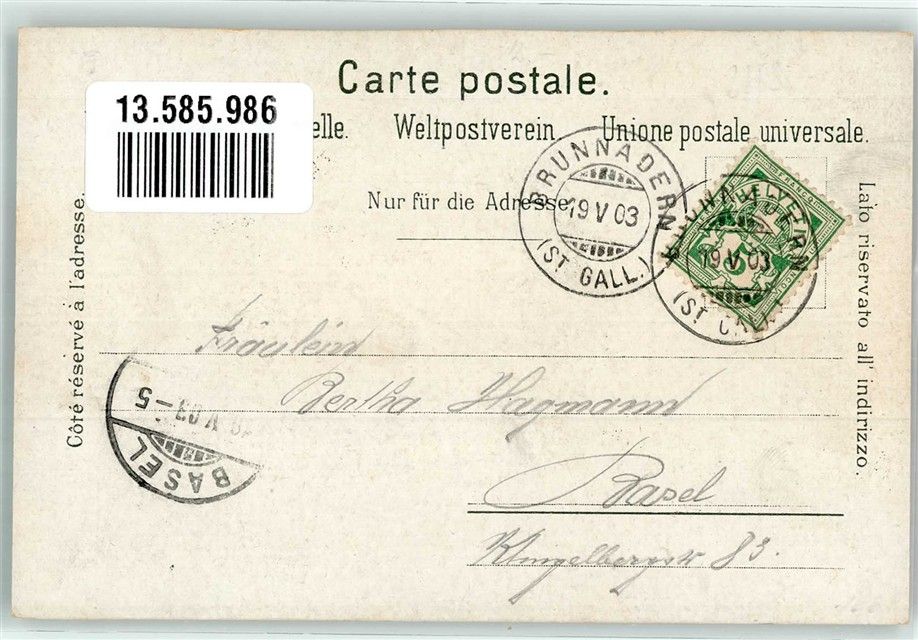 Carte postale.
13.585.986
elle. Weltpostverein. Unione postale universale.
Nur für die Adresse
BRUNNADERN
19 V 03
(ST. GALL.)
BRUNNADERN
19 V 03
(ST. GALL.)
HELVETIA
5
Côté réservé à l'adresse.
Lato riservato all' indirizzo.
Fräulein
Bertha Hagmann
Basel
Klingelbergstr 83.
BASEL
V 03-5